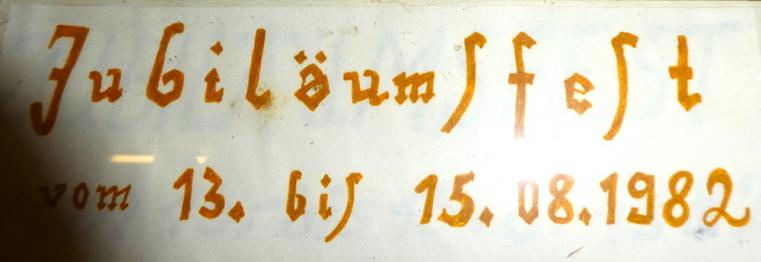 Jubiläumsfest
vom 13. bis 15.08.1982